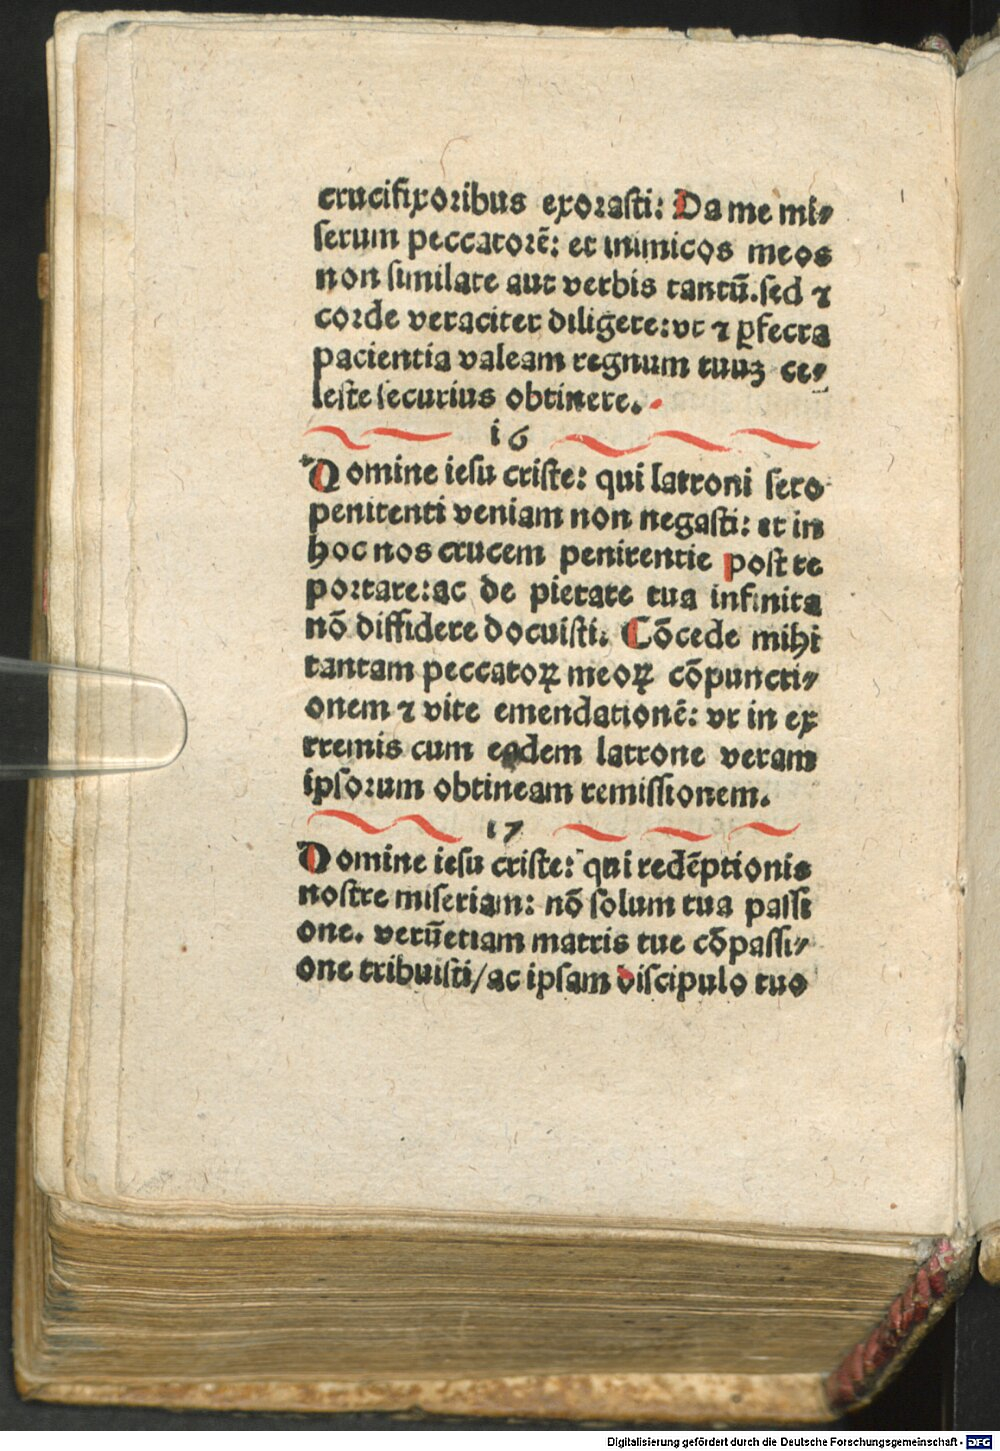 crucifixoribus exorasti: Da me mi⸗
serum peccatorē: et inimicos meos
non similate aut verbis tantū. sed ⁊
corde veraciter diligere: vt ⁊ ꝑfecta
pacientia valeam regnum tuuꝫ ce⸗
leste securius obtinere.
16
Domine iesu criste: qui latroni sero
penitenti veniam non negasti: et in
hoc nos crucem penitentie post te
portare: ac de pietate tua infinita
nō diffidere docuisti. Cōcede mihi
tantam peccatoꝝ meoꝝ cōpuncti⸗
onem ⁊ vite emendationē: vt in ex
tremis cum eodem latrone veram
ipsorum obtineam remissionem.
17
Domine iesu criste: qui redēptionis
nostre miseriam: nō solum tua passi
one. verūetiam matris tue cōpassi⸗
one tribuisti/ac ipsam discipulo tuo
Digitalisierung gefördert durch die Deutsche Forschungsgemeinschaft - DFG